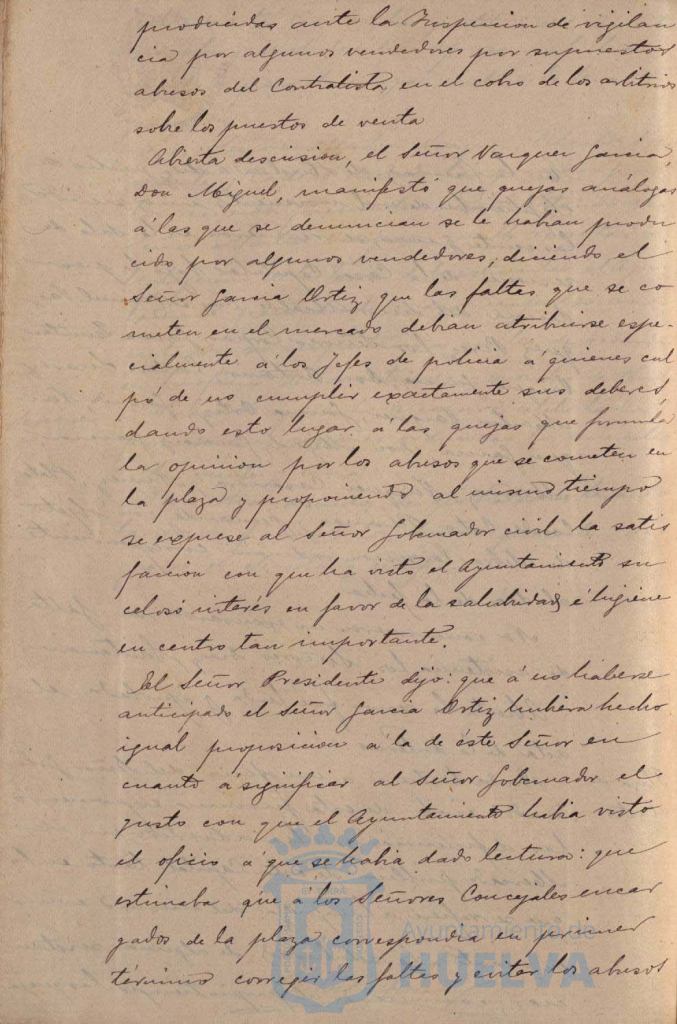 producidas ante la Inspeccion de vigilan
cia por algunos vendedores por supuestos
abusos del Contratista en el cobro de los arbitrios
sobre los puestos de venta
Abierta descusion, el Señor Vazquez Garcia,
Don Miguel, manifestó que quejas análogas
á las que se denuncian se le habian produ
cido por algunos vendedores; diciendo el
Señor Garcia Ortiz que las faltas que se co
meten en el mercado debian atribuirse espe-
cialmente á los Jefes de policia á quienes cul
pó de no cumplir exactamente sus deberes,
dando esto lugar á las quejas que formula
la opinion por los abusos que se cometen en
la plaza y proponiendo al mismo tiempo
se exprese al Señor Gobernador civil la satis
faccion con que ha visto el Ayuntamiento su
celoso interés en favor de la salubridad é higiene
en centro tan importante.
El Señor Presidente dijo: que á no haberse
anticipado el Señor Garcia Ortiz hubiera hecho
igual proposicion á la de éste Señor en
cuanto á significar al Señor Gobernador el
gusto con que el Ayuntamiento habia visto
el oficio á que se habia dado lectura: que
estimaba que á los Señores Concejales encar
gados de la plaza correspondia en primer
término corregir las faltas y evitar los abusos
Ayuntamiento de
HUELVA